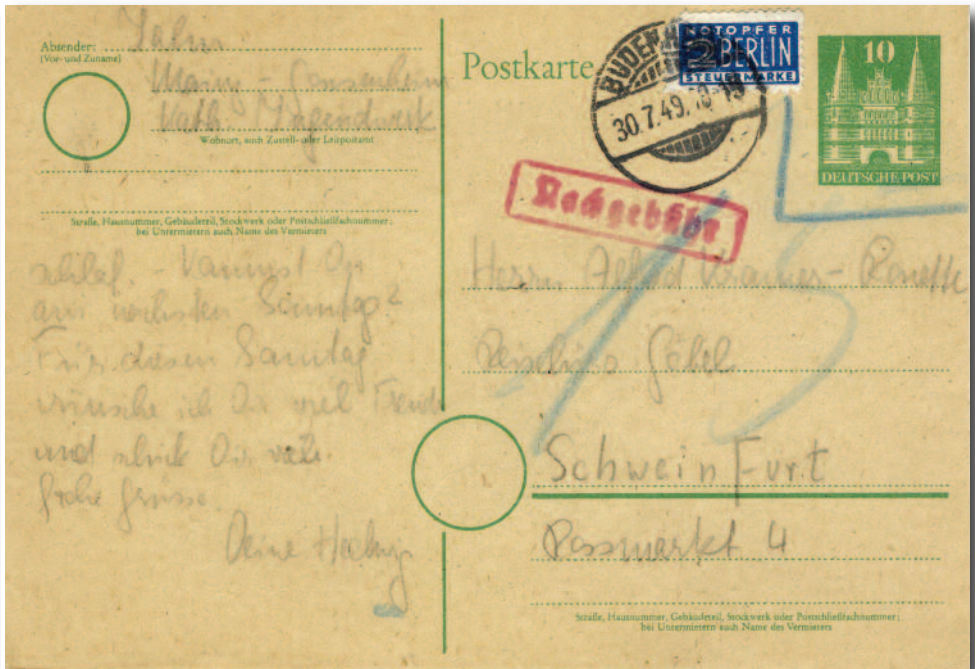 Absender:
(Vor- und Zuname)
Mainz - Gonsenheim
Kath. Jugendwerk
Wohnort, auch Zustell- oder Leitpostamt
Straße, Hausnummer, Gebäudeteil, Stockwerk oder Postschließfachnummer;
bei Untermietern auch Name des Vermieters
Du
am nächsten Sonntag?
Für diesen Sonntag
wünsche ich Dir viel Freude
und Dir
frohe Grüsse.
Deine Hedwig
Postkarte
NOTOPFER
2 BERLIN
STEUERMARKE
30.7.49.
10
DEUTSCHE POST
Nachgebühr
15
Herrn Alfred Kramer-
Göbel
Schweinfurt
Rossmarkt 4
Straße, Hausnummer, Gebäudeteil, Stockwerk oder Postschließfachnummer;
bei Untermietern auch Name des Vermieters